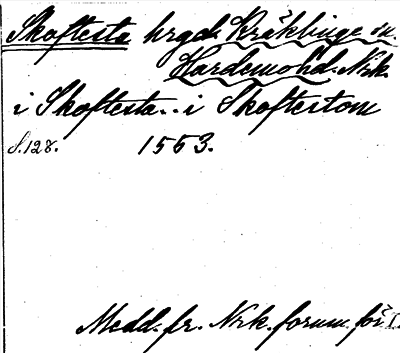 Skoftesta hrgd. Kräklinge sn.
Hardemo hd. Nrk.
i Skoftesta.. i Skoftestom
S. 128. 1553.
Medd. fr. Nrk. fornm. för.